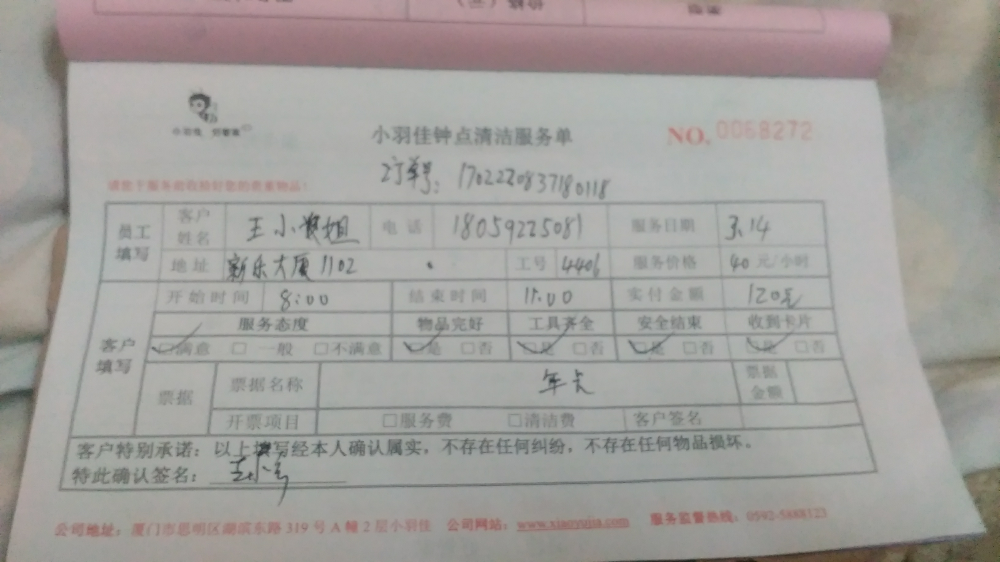 小羽佳钟点清洁服务单 NO. 0068272
订单号: 1702220837180118
请您于服务前收拾好您的贵重物品!
员工填写 客户姓名 王小姐 电话 18059225081 服务日期 3.14
地址 新乐大厦1102 工号 4406 服务价格 40 元/小时
客户填写 开始时间 8:00 结束时间 11:00 实付金额 120元
服务态度 物品完好 工具齐全 安全结束 收到卡片
☑满意 □一般 □不满意 ☑是 □否 ☑是 □否 ☑是 □否 ☑是 □否
票据 票据名称 年卡 票据金额
开票项目 □服务费 □清洁费 客户签名
客户特别承诺: 以上填写经本人确认属实,不存在任何纠纷,不存在任何物品损坏。
特此确认签名:
公司地址: 厦门市思明区湖滨东路 319 号 A 幢 2 层小羽佳 公司网站: www.xiaoyujia.com 服务监督热线: 0592-5888123